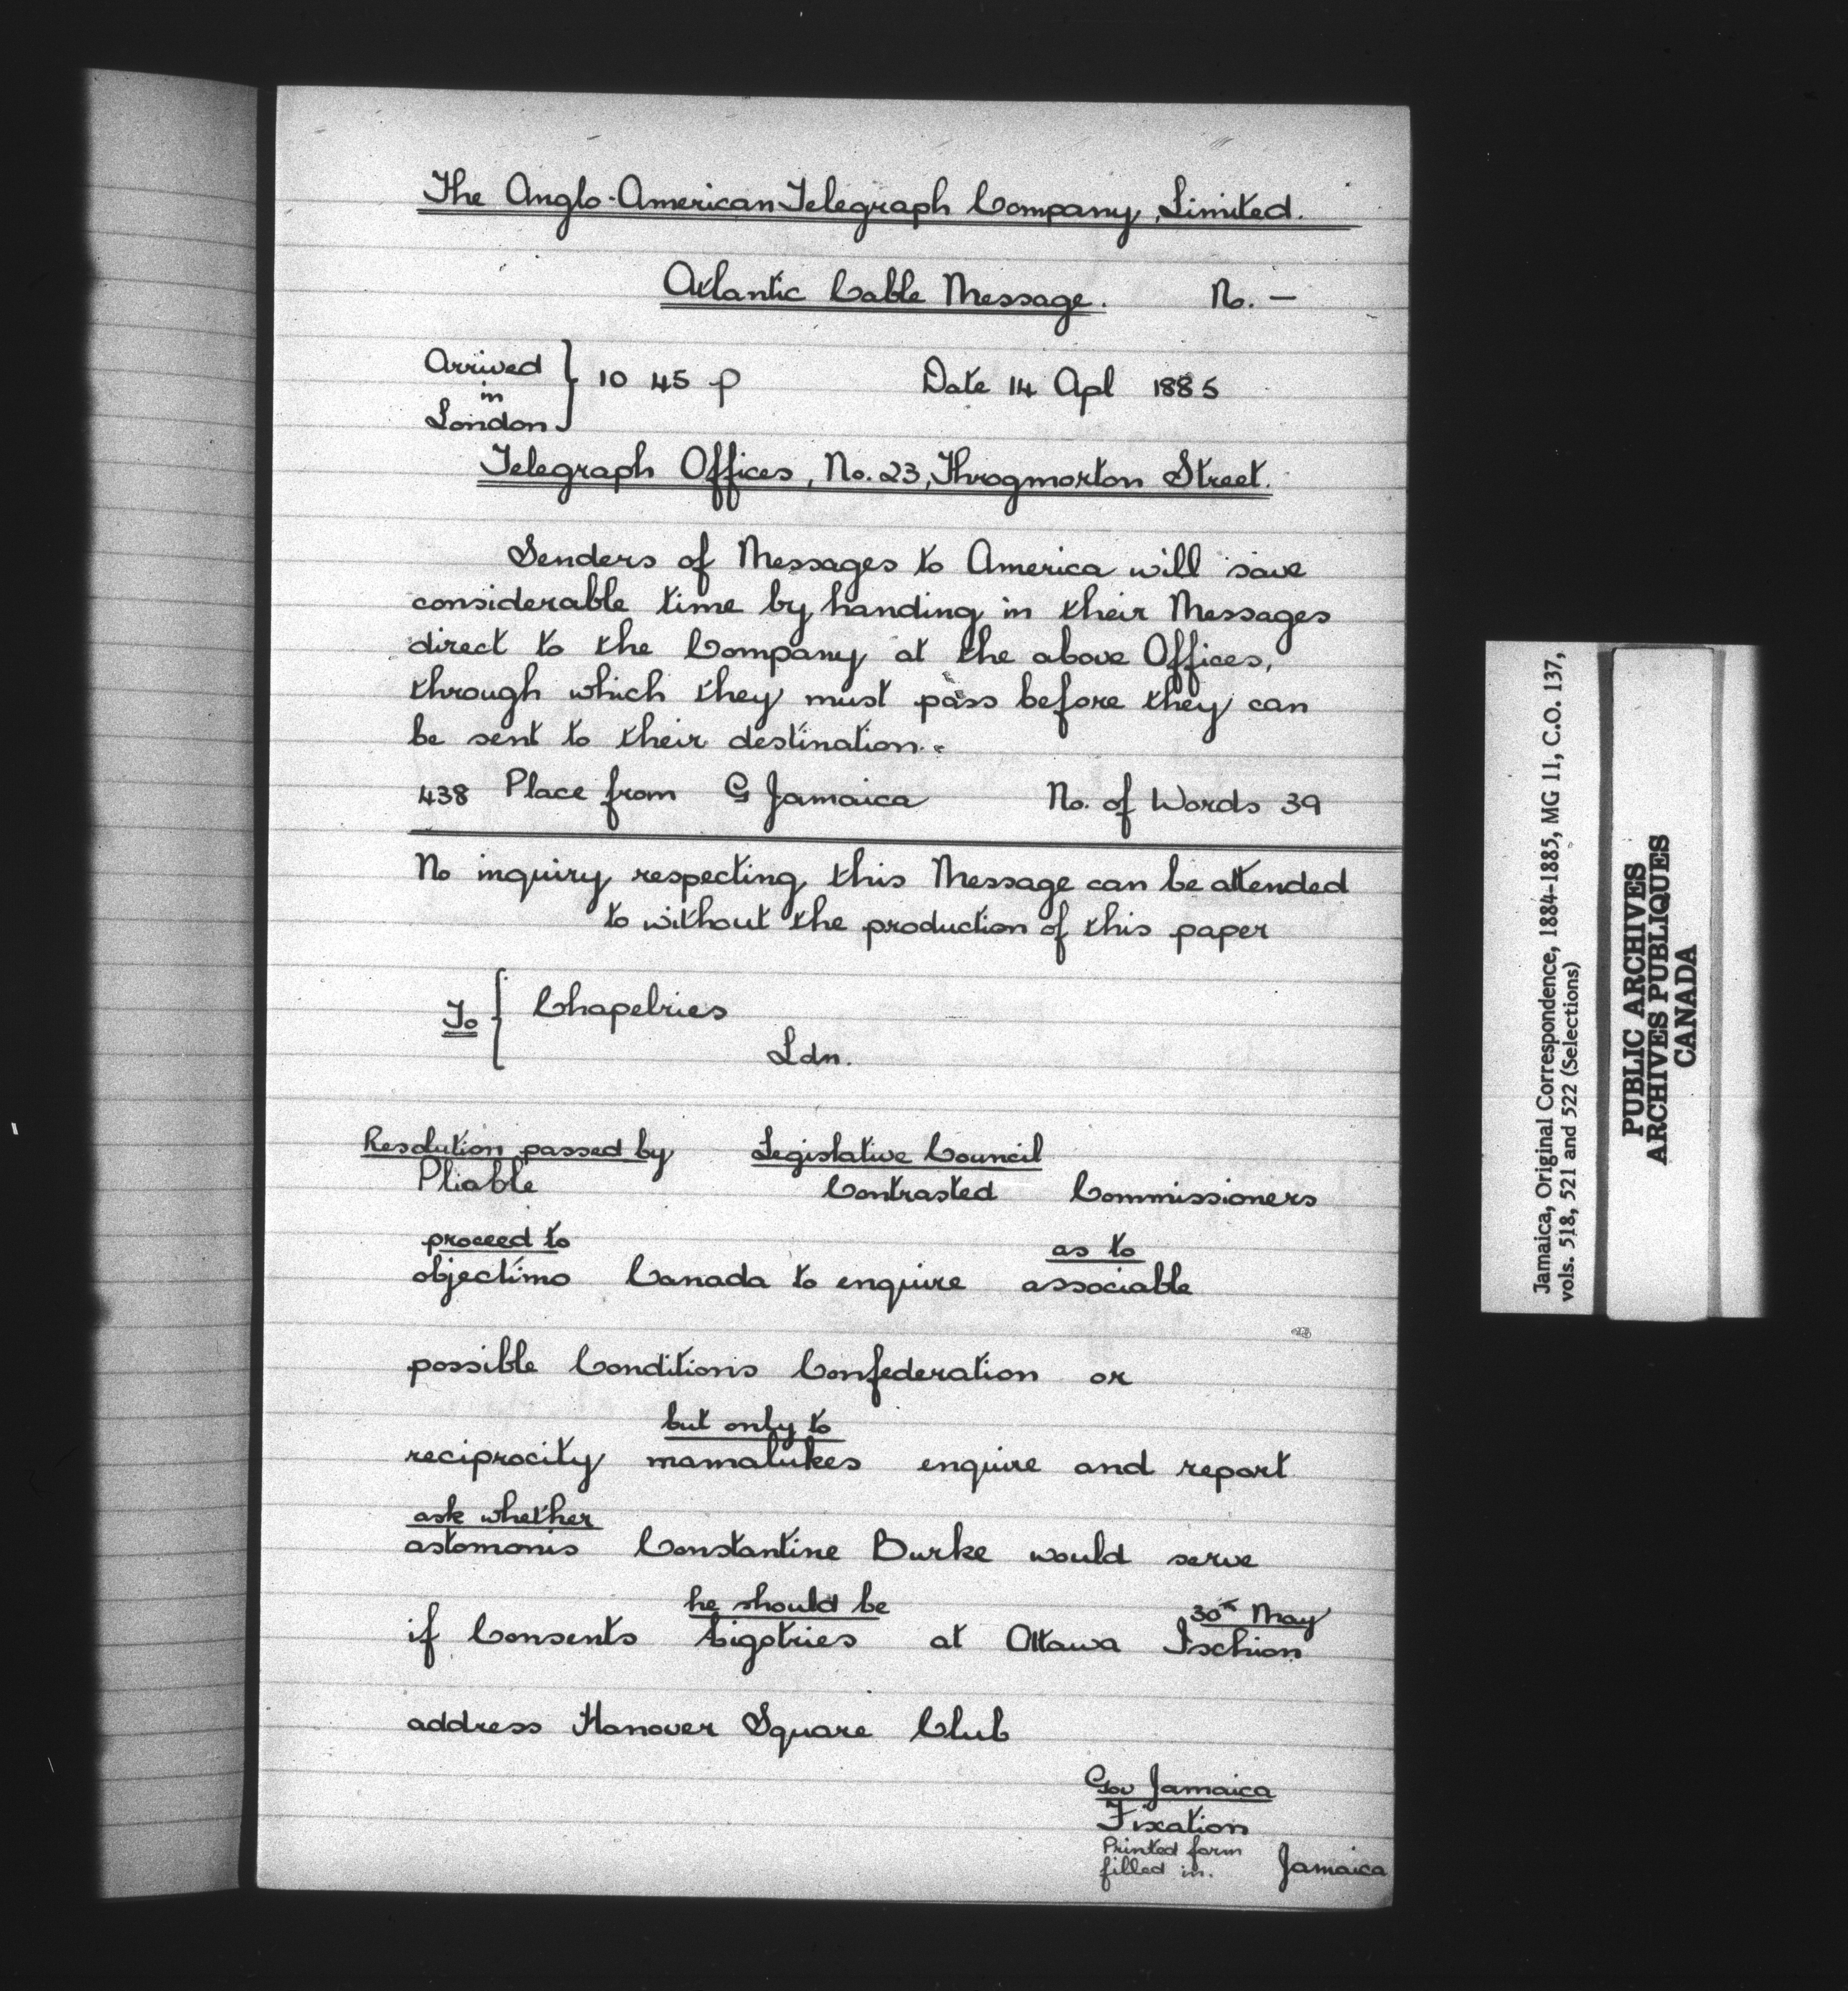 The Anglo-American Telegraph Company, Limited.
Atlantic Cable Message. No. —
Arrived
in
London } 10 45 p Date 14 Apl 1885
Telegraph Offices, No. 23, Throgmorton Street.
Senders of Messages to America will save
considerable time by handing in their Messages
direct to the Company at the above Offices,
through which they must pass before they can
be sent to their destination.
438 Place from G Jamaica No. of Words 39
No inquiry respecting this Message can be attended
to without the production of this paper
To { Chapelries
Ldn.
Resolution passed by Legislative Council
Pliable Contrasted Commissioners
proceed to as to
objectimo Canada to enquire associable
possible Conditions Confederation or
but only to
reciprocity mamalukes enquire and report
ask whether
astomonis Constantine Burke would serve
he should be 30th May
if Consents bigotries at Ottawa Ischion
address Hanover Square Club
Gov Jamaica
Fixation
Printed form
filled in. Jamaica
Jamaica, Original Correspondence, 1884-1885, MG 11, C.O. 137,
vols. 518, 521 and 522 (Selections)
PUBLIC ARCHIVES
ARCHIVES PUBLIQUES
CANADA